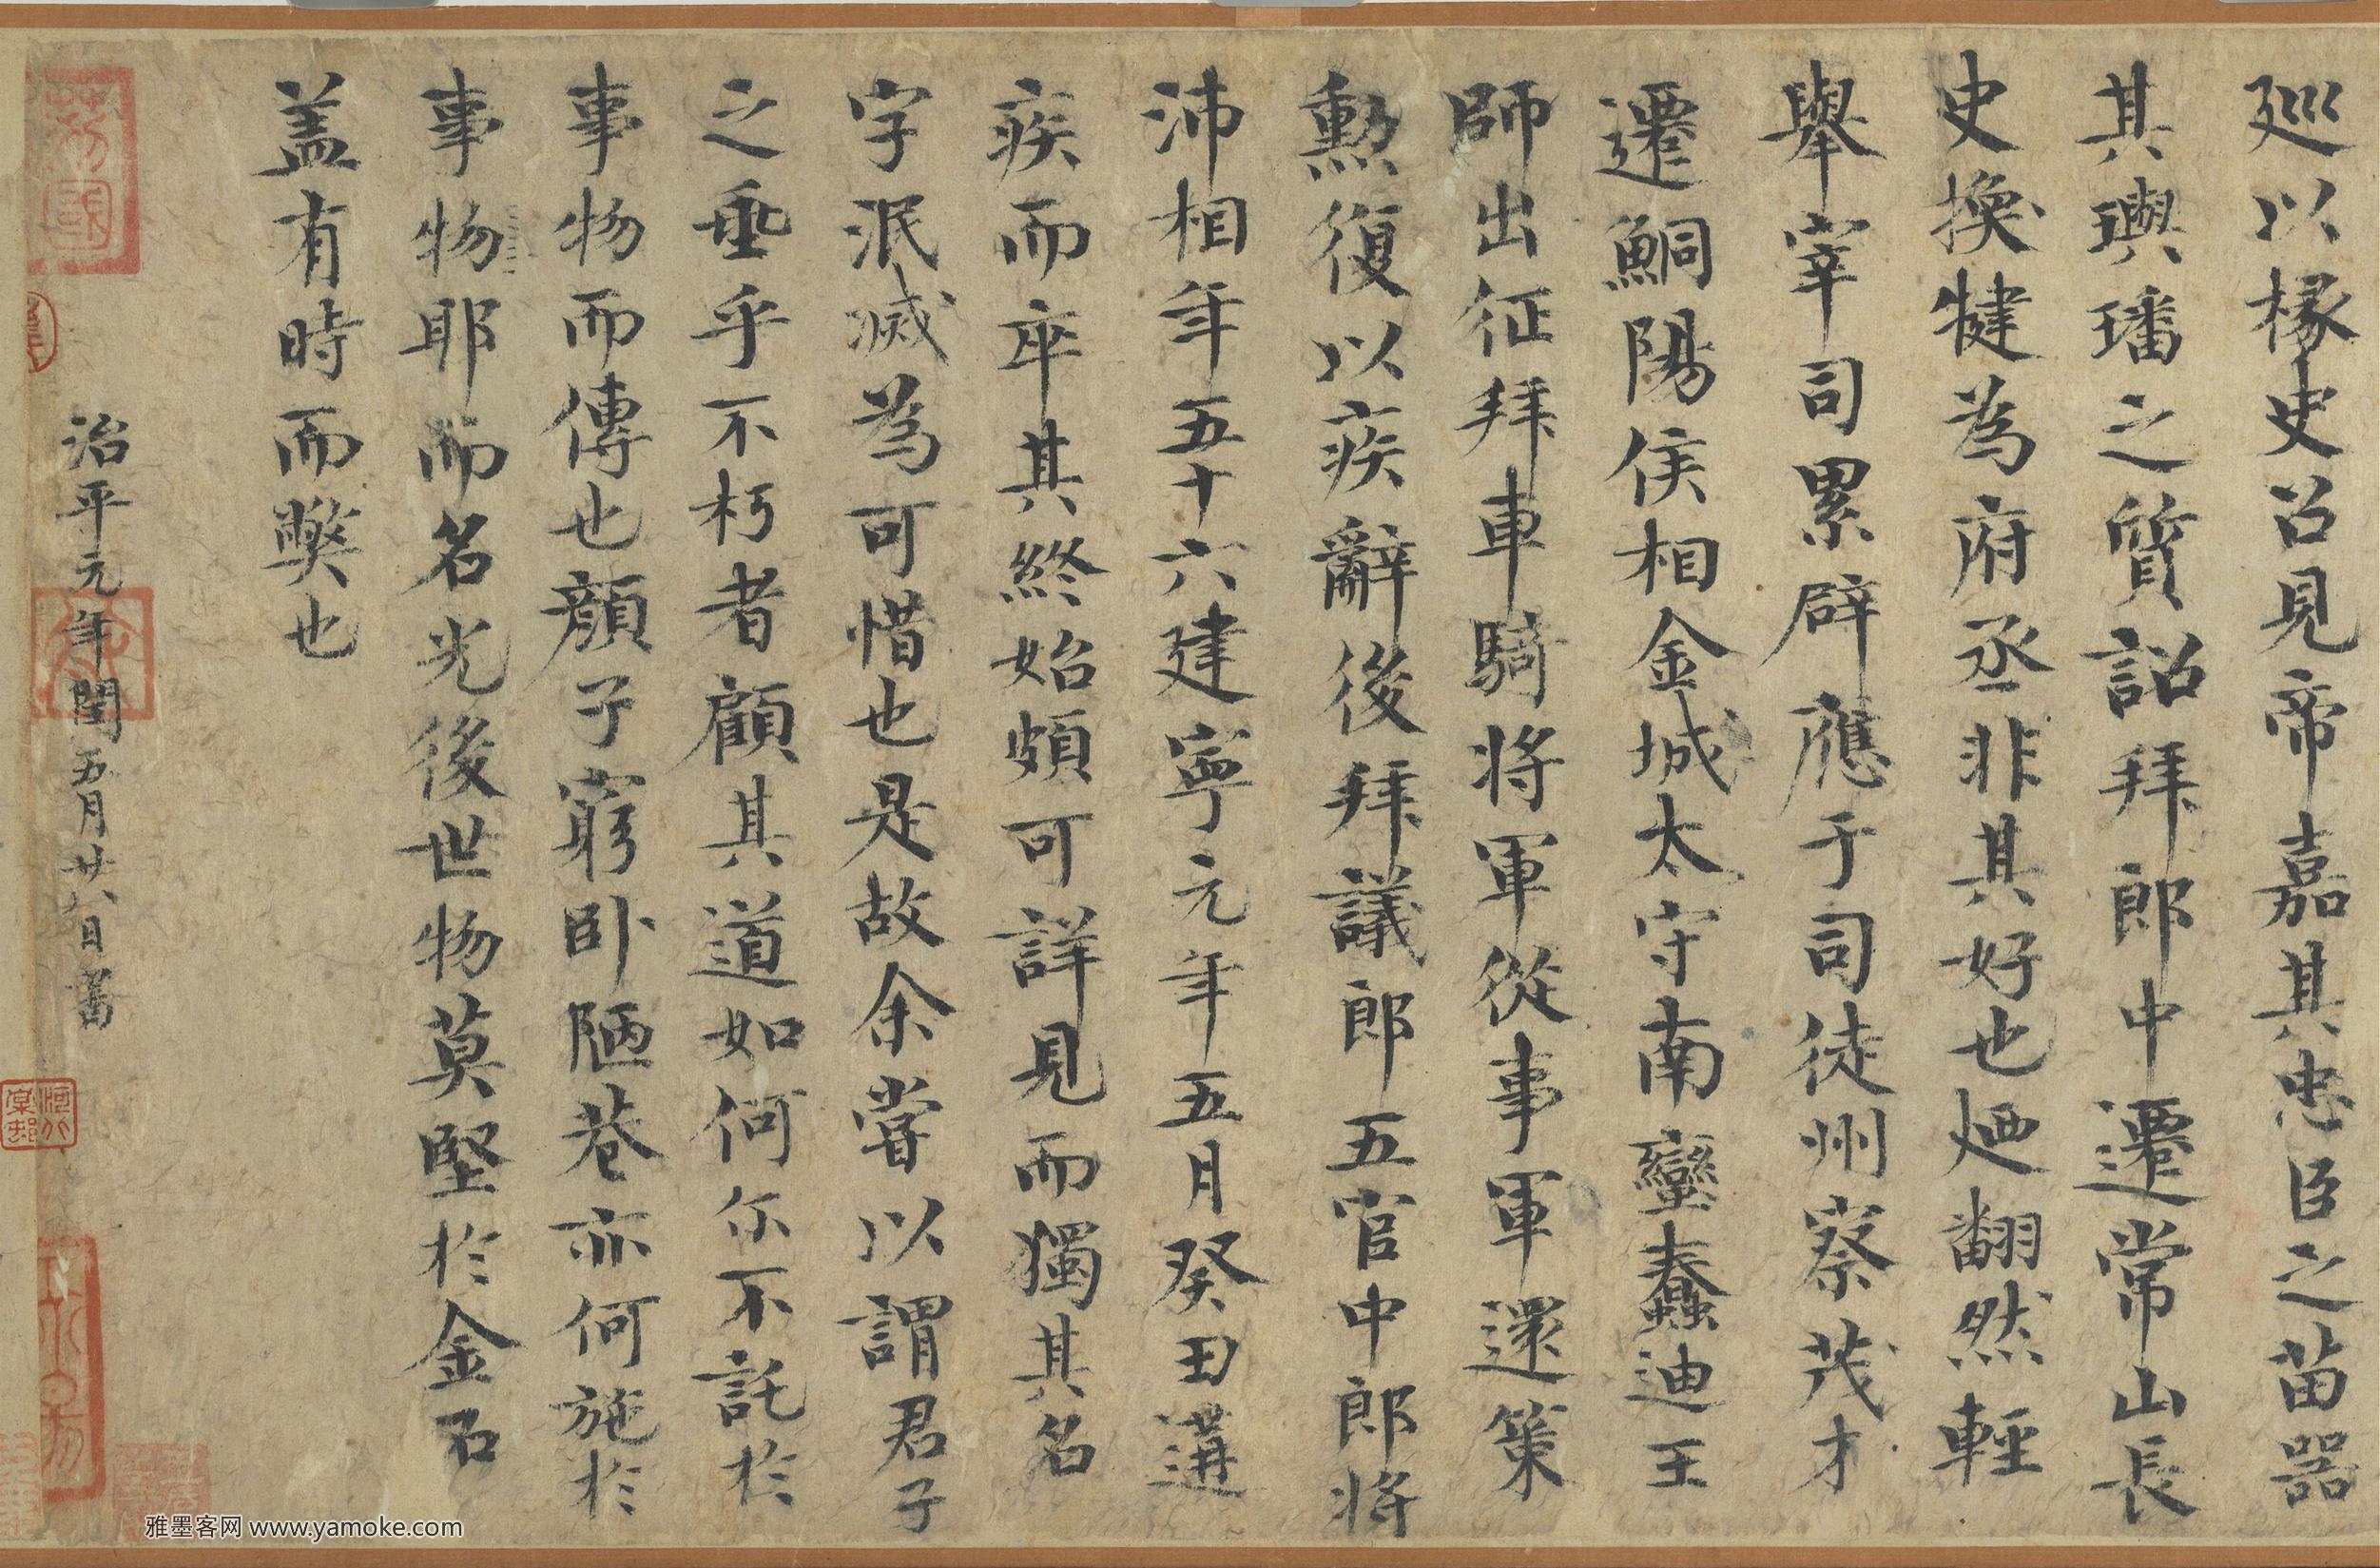 廵以掾史召見帝嘉其忠臣之苗器
其璵璠之質詔拜郎中遷常山長
史換犍為府丞非其好也廼翻然輕
舉宰司累辟應于司徒州察茂才
遷鮦陽侯相金城太守南蠻蠢迪王
師出征拜車騎將軍從事軍還策
勲復以疾辭後拜議郎五官中郎將
沛相年五十六建寧元年五月癸田遘
疾而卒其終始頗可詳見而獨其名
字泯滅為可惜也是故余嘗以謂君子
之垂乎不朽者顧其道如何尒不託於
事物而傳也顏子窮卧陋巷亦何施於
事物耶而名光後世物莫堅於金石
盖有時而弊也
治平元年閏五月廿八日書
雅墨客网 www.yamoke.com